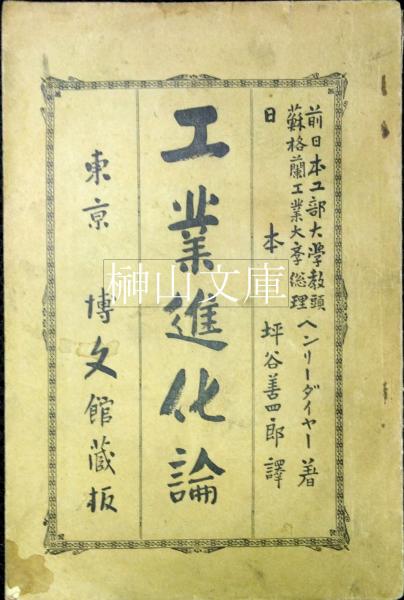 前日本工部大學教頭
蘇格蘭工業大学總理
ヘンリーダイヤー 著
日本 坪谷善四郎 譯
工業進化論
東京 博文館藏板
榊山文庫